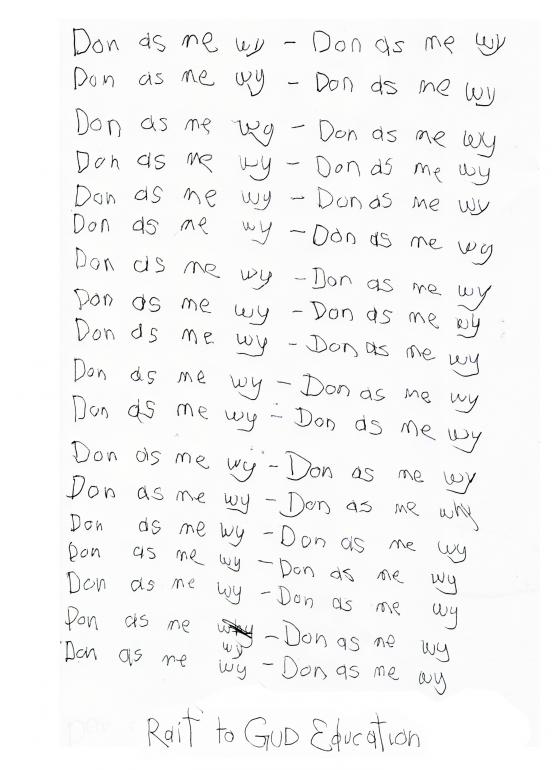 Don as me wy - Don as me wy
Don as me wy - Don as me wy
Don as me wg - Don as me wy
Don as me wy - Don as me wy
Don as me wy - Don as me wy
Don as me wy - Don as me wg
Don as me wy - Don as me wy
Don as me wy - Don as me wy
Don as me wy - Don as me wy
Don as me wy - Don as me wy
Don as me wy - Don as me wy
Don as me wy - Don as me wy
Don as me wy - Don as me why
Don as me wy - Don as me wy
Don as me wy - Don as me wy
Don as me wy - Don as me wy
Don as me wy - Don as me wy
Don as me wy - Don as me wy
Rait to GUD Education